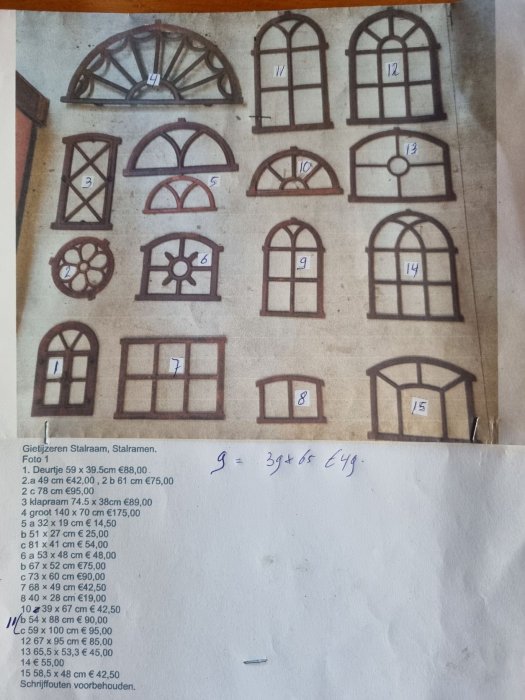 4
11
12
3
5
10
13
2
6
9
14
1
7
8
15
Gietijzeren Stalraam, Stalramen.
Foto 1
9 = 39x65 €49.
1. Deurtje 59 x 39.5cm €88,00
2.a 49 cm €42,00 , 2 b 61 cm €75,00
2 c 78 cm €95,00
3 klapraam 74.5 x 38cm €89,00
4 groot 140 x 70 cm €175,00
5 a 32 x 19 cm € 14,50
b 51 x 27 cm € 25,00
c 81 x 41 cm € 54,00
6 a 53 x 48 cm € 48,00
b 67 x 52 cm €75,00
c 73 x 60 cm €90,00
7 68 x 49 cm €42,50
8 40 x 28 cm €19,00
10 39 x 67 cm € 42,50
11 b 54 x 88 cm € 90,00
c 59 x 100 cm € 95,00
12 67 x 95 cm € 85,00
13 65,5 x 53,3 € 45,00
14 € 55,00
15 58,5 x 48 cm € 42,50
Schrijffouten voorbehouden.